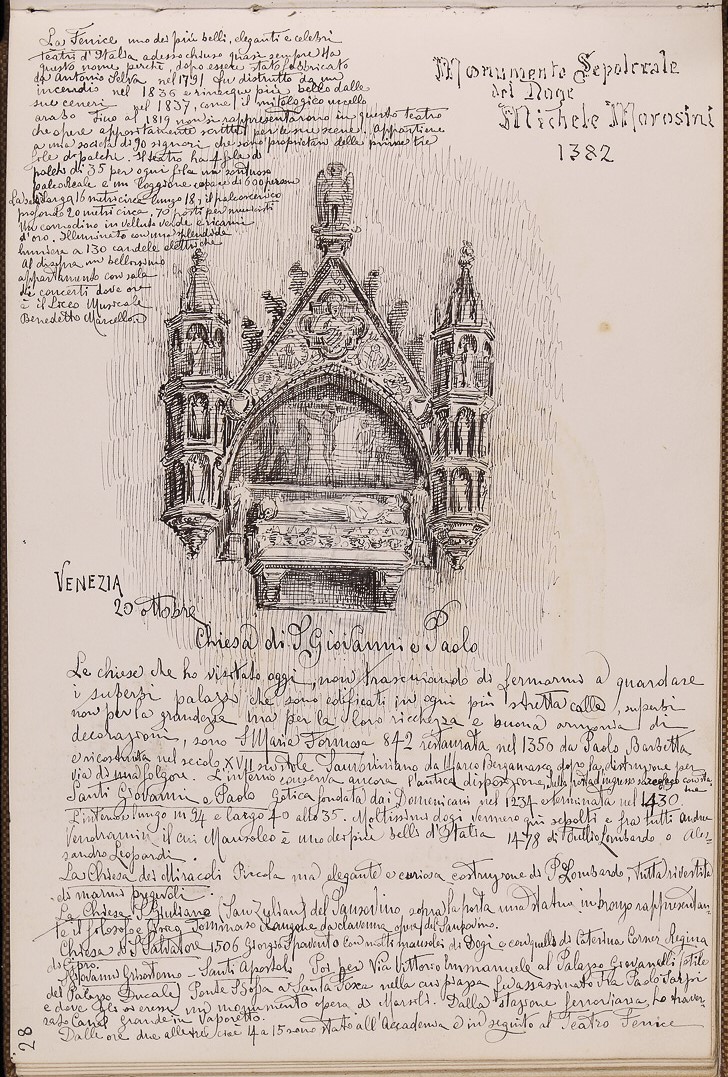 La Fenice uno dei più belli, eleganti e celebri
teatri d'Italia adesso chiuso quasi sempre Ha
questo nome perchè, dopo essere stato fabbricato
da Antonio Selva nel 1791 fu distrutto da un
incendio nel 1836 e rinacque più bello dalle
sue ceneri nel 1837, come il mitologico uccello
arabo Fino al 1819 non si rappresentarono in questo teatro
che opere appositamente scritte per le sue scene. Appartiene
a una società di 90 signori che sono proprietari delle prime tre
file di palchi. Il teatro ha 4 file di
palchi di 35 per ogni fila un sontuoso
palco reale e un loggione capace di 600 persone
La sala larga 16 metri circa lungo 18; il palcoscenico
profondo 20 metri circa. 70 posti per musicisti
Un comodino in velluto verde e ricami
d'oro. Illuminato con una splendida
lumiera a 130 candele elettriche
Al disopra un bellissimo
appartamento con sala
di concerti dove ora
è il Liceo Musicale
Benedetto Marcello.
Monumento Sepolcrale
del Doge
Michele Morosini
1382
VENEZIA
20 ottobre
Chiesa di S. Giovanni e Paolo
Le chiese che ho visitato oggi, non trascurando di fermarmi a guardare
i superbi palazzi che sono edificati in ogni più stretta calle, superbi
non per la grandezza ma per la loro ricchezza e buona armonia di
decorazioni, sono S. Maria Formosa 842 restaurata nel 1350 da Paolo Barbetta
e ricostruita nel secolo XVII in stile Sansoviniano da Marco Bergamasco dopo la distruzione per
via di una folgore. L'interno conserva ancora l'antica disposizione, nella porta d'ingresso
Santi Giovanni e Paolo Gotica fondata dai Domenicani nel 1234 e terminata nel 1430.
L'interno è lungo m 94 e largo 40 alto 35. Moltissimi dogi vennero qui sepolti e fra tutti Andrea
Vendramin il cui Mausoleo è uno dei più belli d'Italia 1478 di Tullio Lombardo o Ales-
sandro Leopardi.
La Chiesa dei Miracoli Piccola ma elegante e curiosa costruzione di P. Lombardo, tutta rivestita
di marmi pregevoli
La Chiesa S. Giuliano (San Zulian) del Sansovino sopra la porta una statua in bronzo rappresentan-
te il filosofo e Tommaso Rangone da Ravenna opera del Sansovino.
Chiesa di S. Salvatore 1506 Giorgio Spavento Con molti mausolei di Dogi e con quello di Caterina Corner Regina
di Cipro.
S. Giovanni Grisostomo - Santi Apostoli Poi per Via Vittorio Emmanuele al Palazzo Giovanelli (stile
del Palazzo Ducale) Ponte S. Fosca e Santa Fosca nella cui piazza fu assassinato Fra Paolo Sarpi
e dove gli si eresse un monumento opera di Marsili. Dalla stazione ferroviaria, ho traver-
sato Canal Grande in Vaporetto.
Dalle ore due alle tre cioè 14 a 15 sono stato all'Accademia e in seguito al Teatro Fenice
28